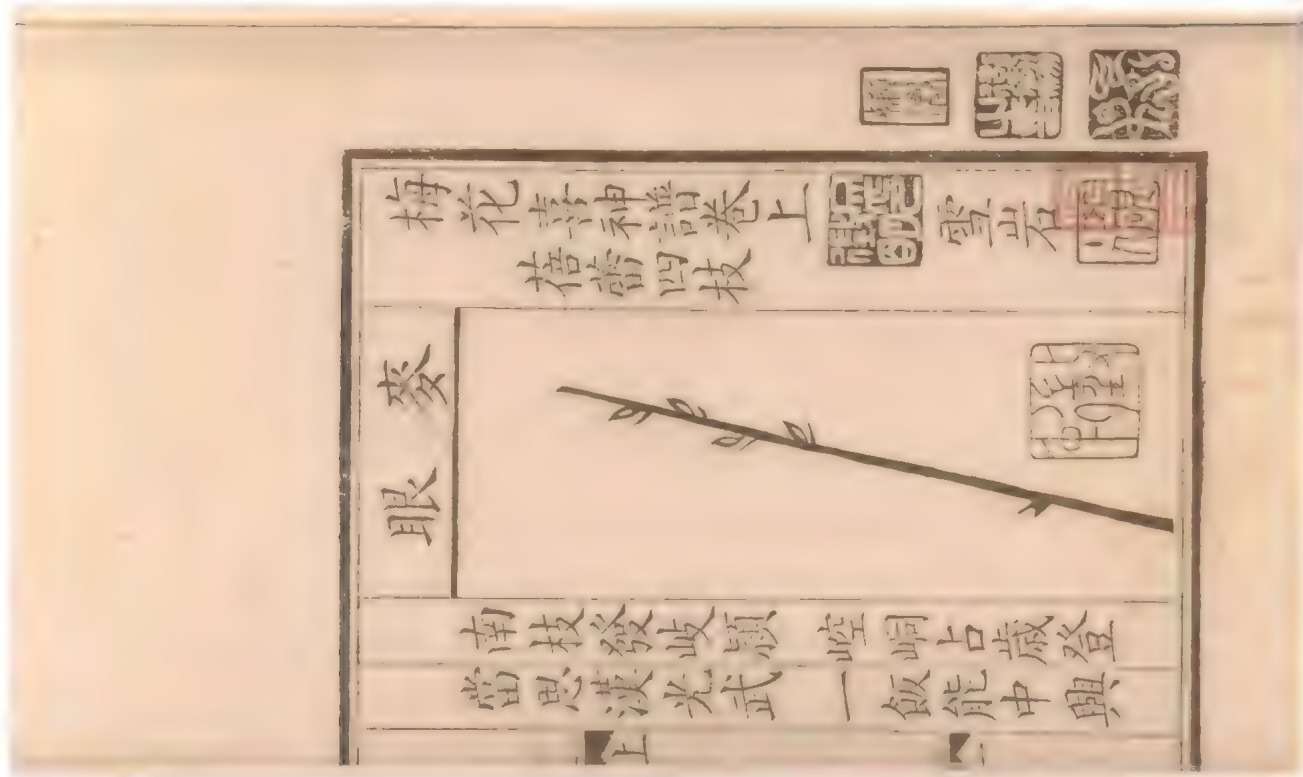 梅花喜神譜卷上
雪岩
蓓蕾四枝
麥眼
南枝發岐穎 崆峒占歲登
當思漢光武 一飯能中興
上 一